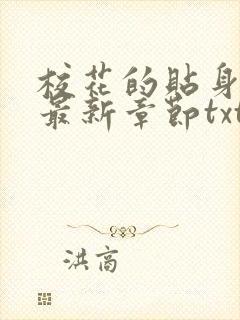 校花的贴身
最新章节txt
洪高